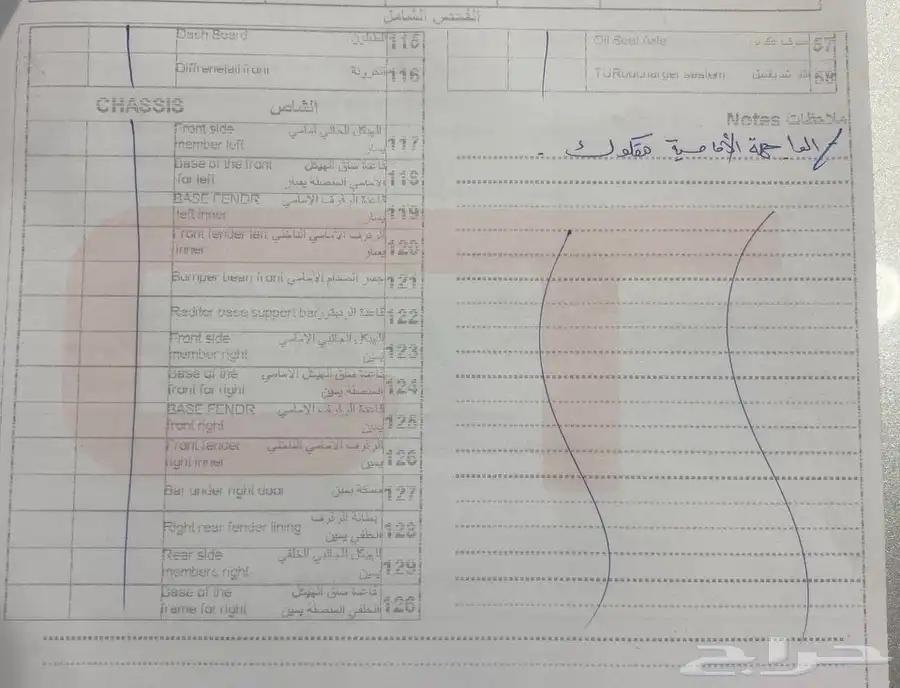 الفحص الشامل
Dash Board الطبلون 115
Diffrenetail front الدفرونة 116
CHASSIS الشاص
Front side الهيكل الجانبي أمامي
member left يسار 117
Base of the front قاعدة ساق الهيكل
for left الأمامي المتصلة يسار 118
BASE FENDR قاعدة الرفرف الإمامي
left inner يسار 119
Front fender left الرفرف الأمامي الداخلي
inner يسار 120
Bumper bean front جسر الصدام الأمامي 121
Raditor base support bar قاعدة الرديتر 122
Front side الهيكل الجانبي الامامي
member right يمين 123
Base of the قاعدة ساق الهيكل الامامي
front for right المتصلة يمين 124
BASE FENDR قاعدة الرفرف الإمامي
front right يمين 125
Front fender الرفرف الأمامي الداخلي
right inner يمين 126
Bar under right door مسكة يمين 127
Right rear fender lining بطانة الرفرف
الخلفي يمين 128
Rear side الهيكل الجانبي الخلفي
members right يمين 129
Base of the قاعدة ساق الهيكل
frame for right الخلفي المتصلة يمين 126
Oil Seal Axle 57
TURbocharger system 58
Notes ملاحظات
الواجهة الأمامية مفكوك .
حراج